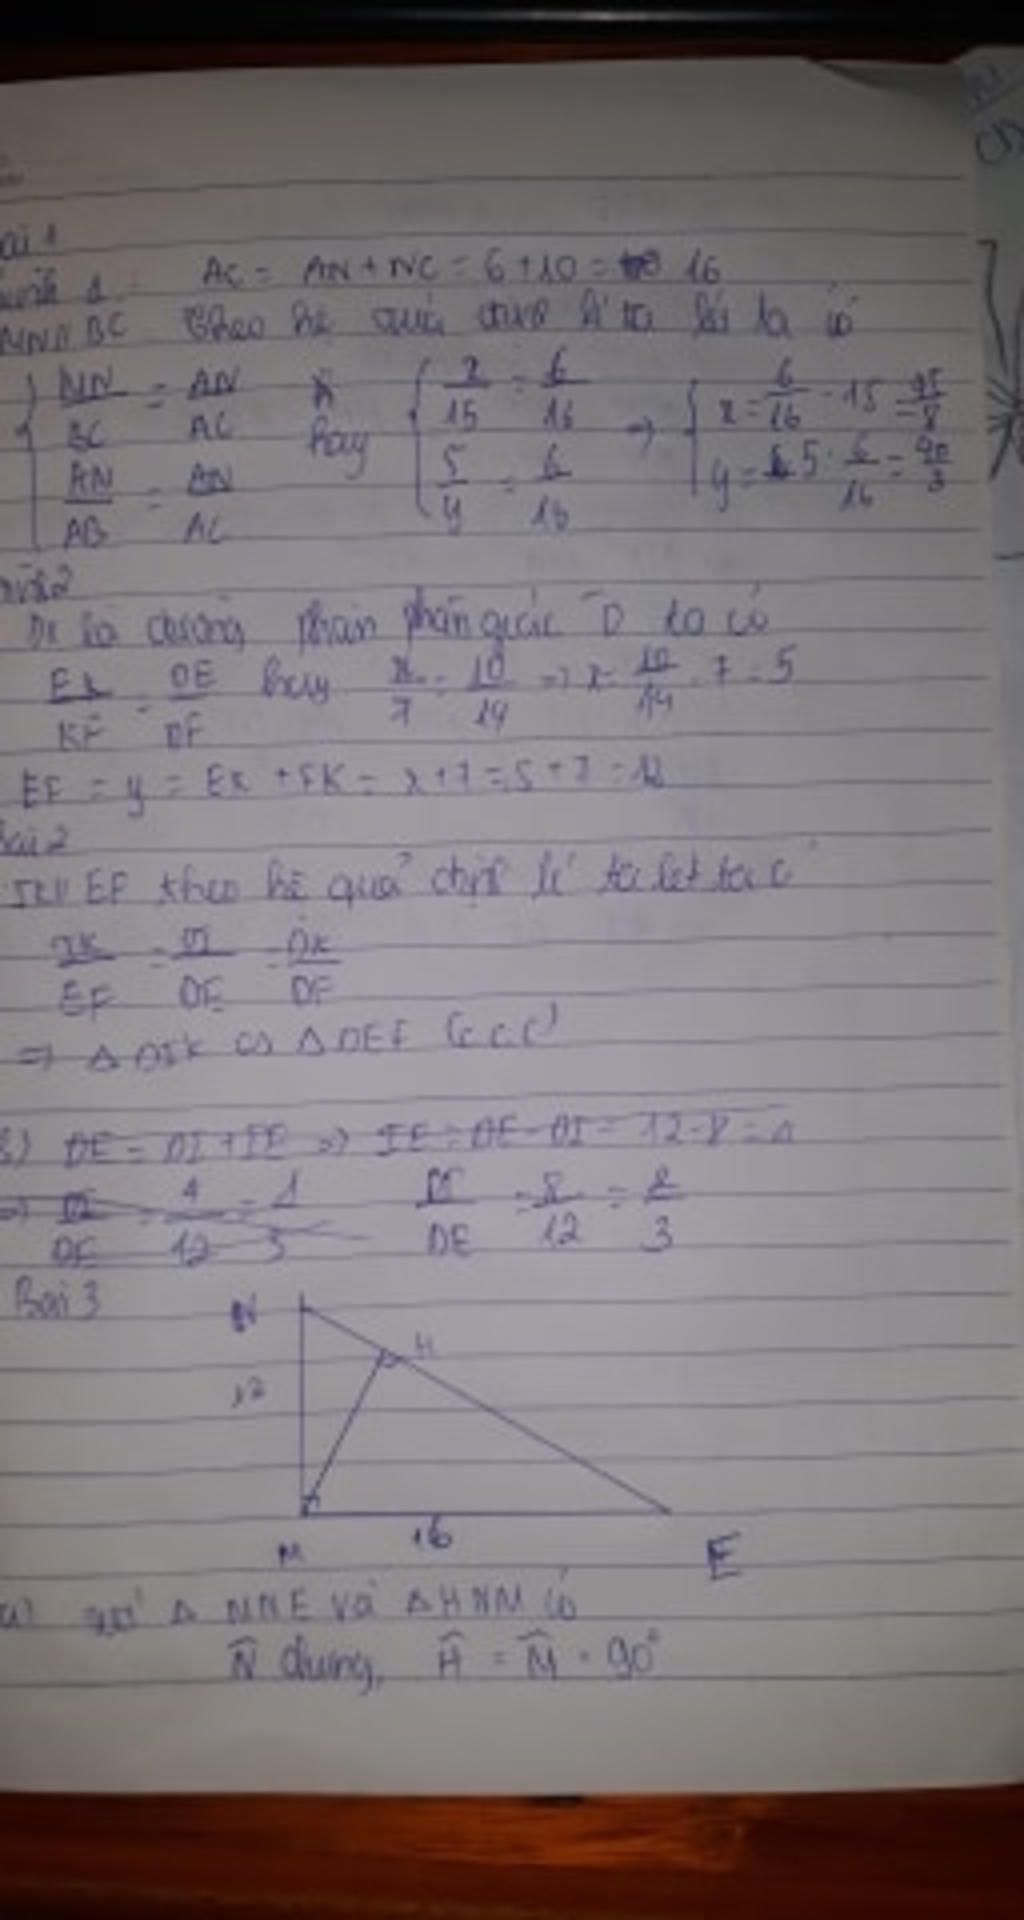 ài 1
AC = AN + NC = 6 + 10 = 16
MN // BC Theo hệ quả định lí ta lét ta có
MN/BC = AN/AC hay x/15 = 6/16 => x = 6/16 . 15 = 45/8
AN/AB = AN/AC 5/y = 6/16 y = 5 . 6/16 = 40/3
2
là đường phân giác D ta có
EK/KF = DE/DF hay x/7 = 10/14 => x = 10/14 . 7 = 5
EF = y = EK + FK = x + 7 = 5 + 7 = 12
Bài 2
IK // EF theo hệ quả định lí ta let ta c
IK/EF = DI/DE = DK/DF
=> △DIK ∽ △DEF (c.c.c)
b) DE = DI + IE => IE = DE - DI = 12 - 8 =
=> DI/DE = 4/12 = 1/3 DI/DE = 8/12 = 2/3
Bài 3
N
H
12
M
16
E
a) xét △ MNE và △ HNM có
N̂ chung, Ĥ = M̂ = 90°